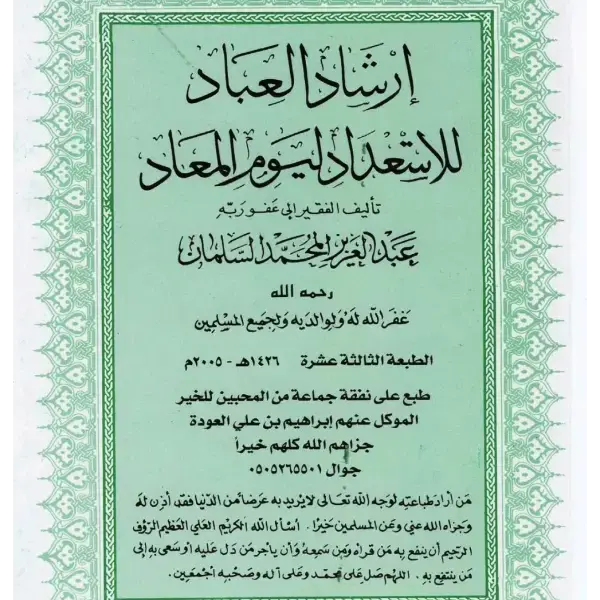 إرشاد العباد
للاستعداد ليوم المعاد
تأليف الفقير إلى عفو ربه
عبد العزيز المحمد السلمان
رحمه الله
غفر الله له ولوالديه ولجميع المسلمين
الطبعة الثالثة عشرة ١٤٢٦هـ - ٢٠٠٥م
طبع على نفقة جماعة من المحبين للخير
الموكل عنهم إبراهيم بن علي العودة
جزاهم الله كلهم خيراً
جوال ٠٥٠٥٢٦٥٥٠١
من أراد طباعته لوجه الله تعالى لا يريد به عرضا من الدنيا فقد أذن له
وجزاه الله عني وعن المسلمين خيرًا . أسأل الله الكريم العلي العظيم الرؤف
الرحيم أن ينفع به من قراه ومن سمعه وأن يأجر من دل عليه أو سعى به إلى
من ينتفع به . اللهم صل على محمد وعلى آله وصحبه أجمعين .